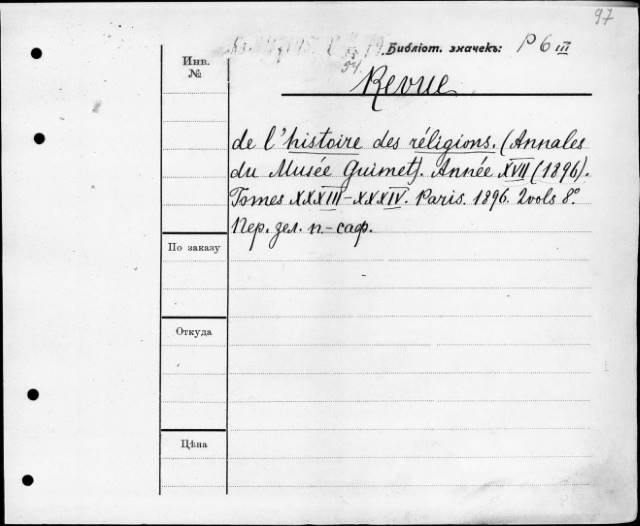 97
Библіот. значекъ: P 6 III
Инв.
№
Revue
de l'histoire des réligions. (Annales
du Musée Guimet). Année XVII (1896).
Tomes XXXIII–XXXIV. Paris. 1896. 2 vols 8°.
Пер. зел. п.-саф.
По заказу
Откуда
Цѣна